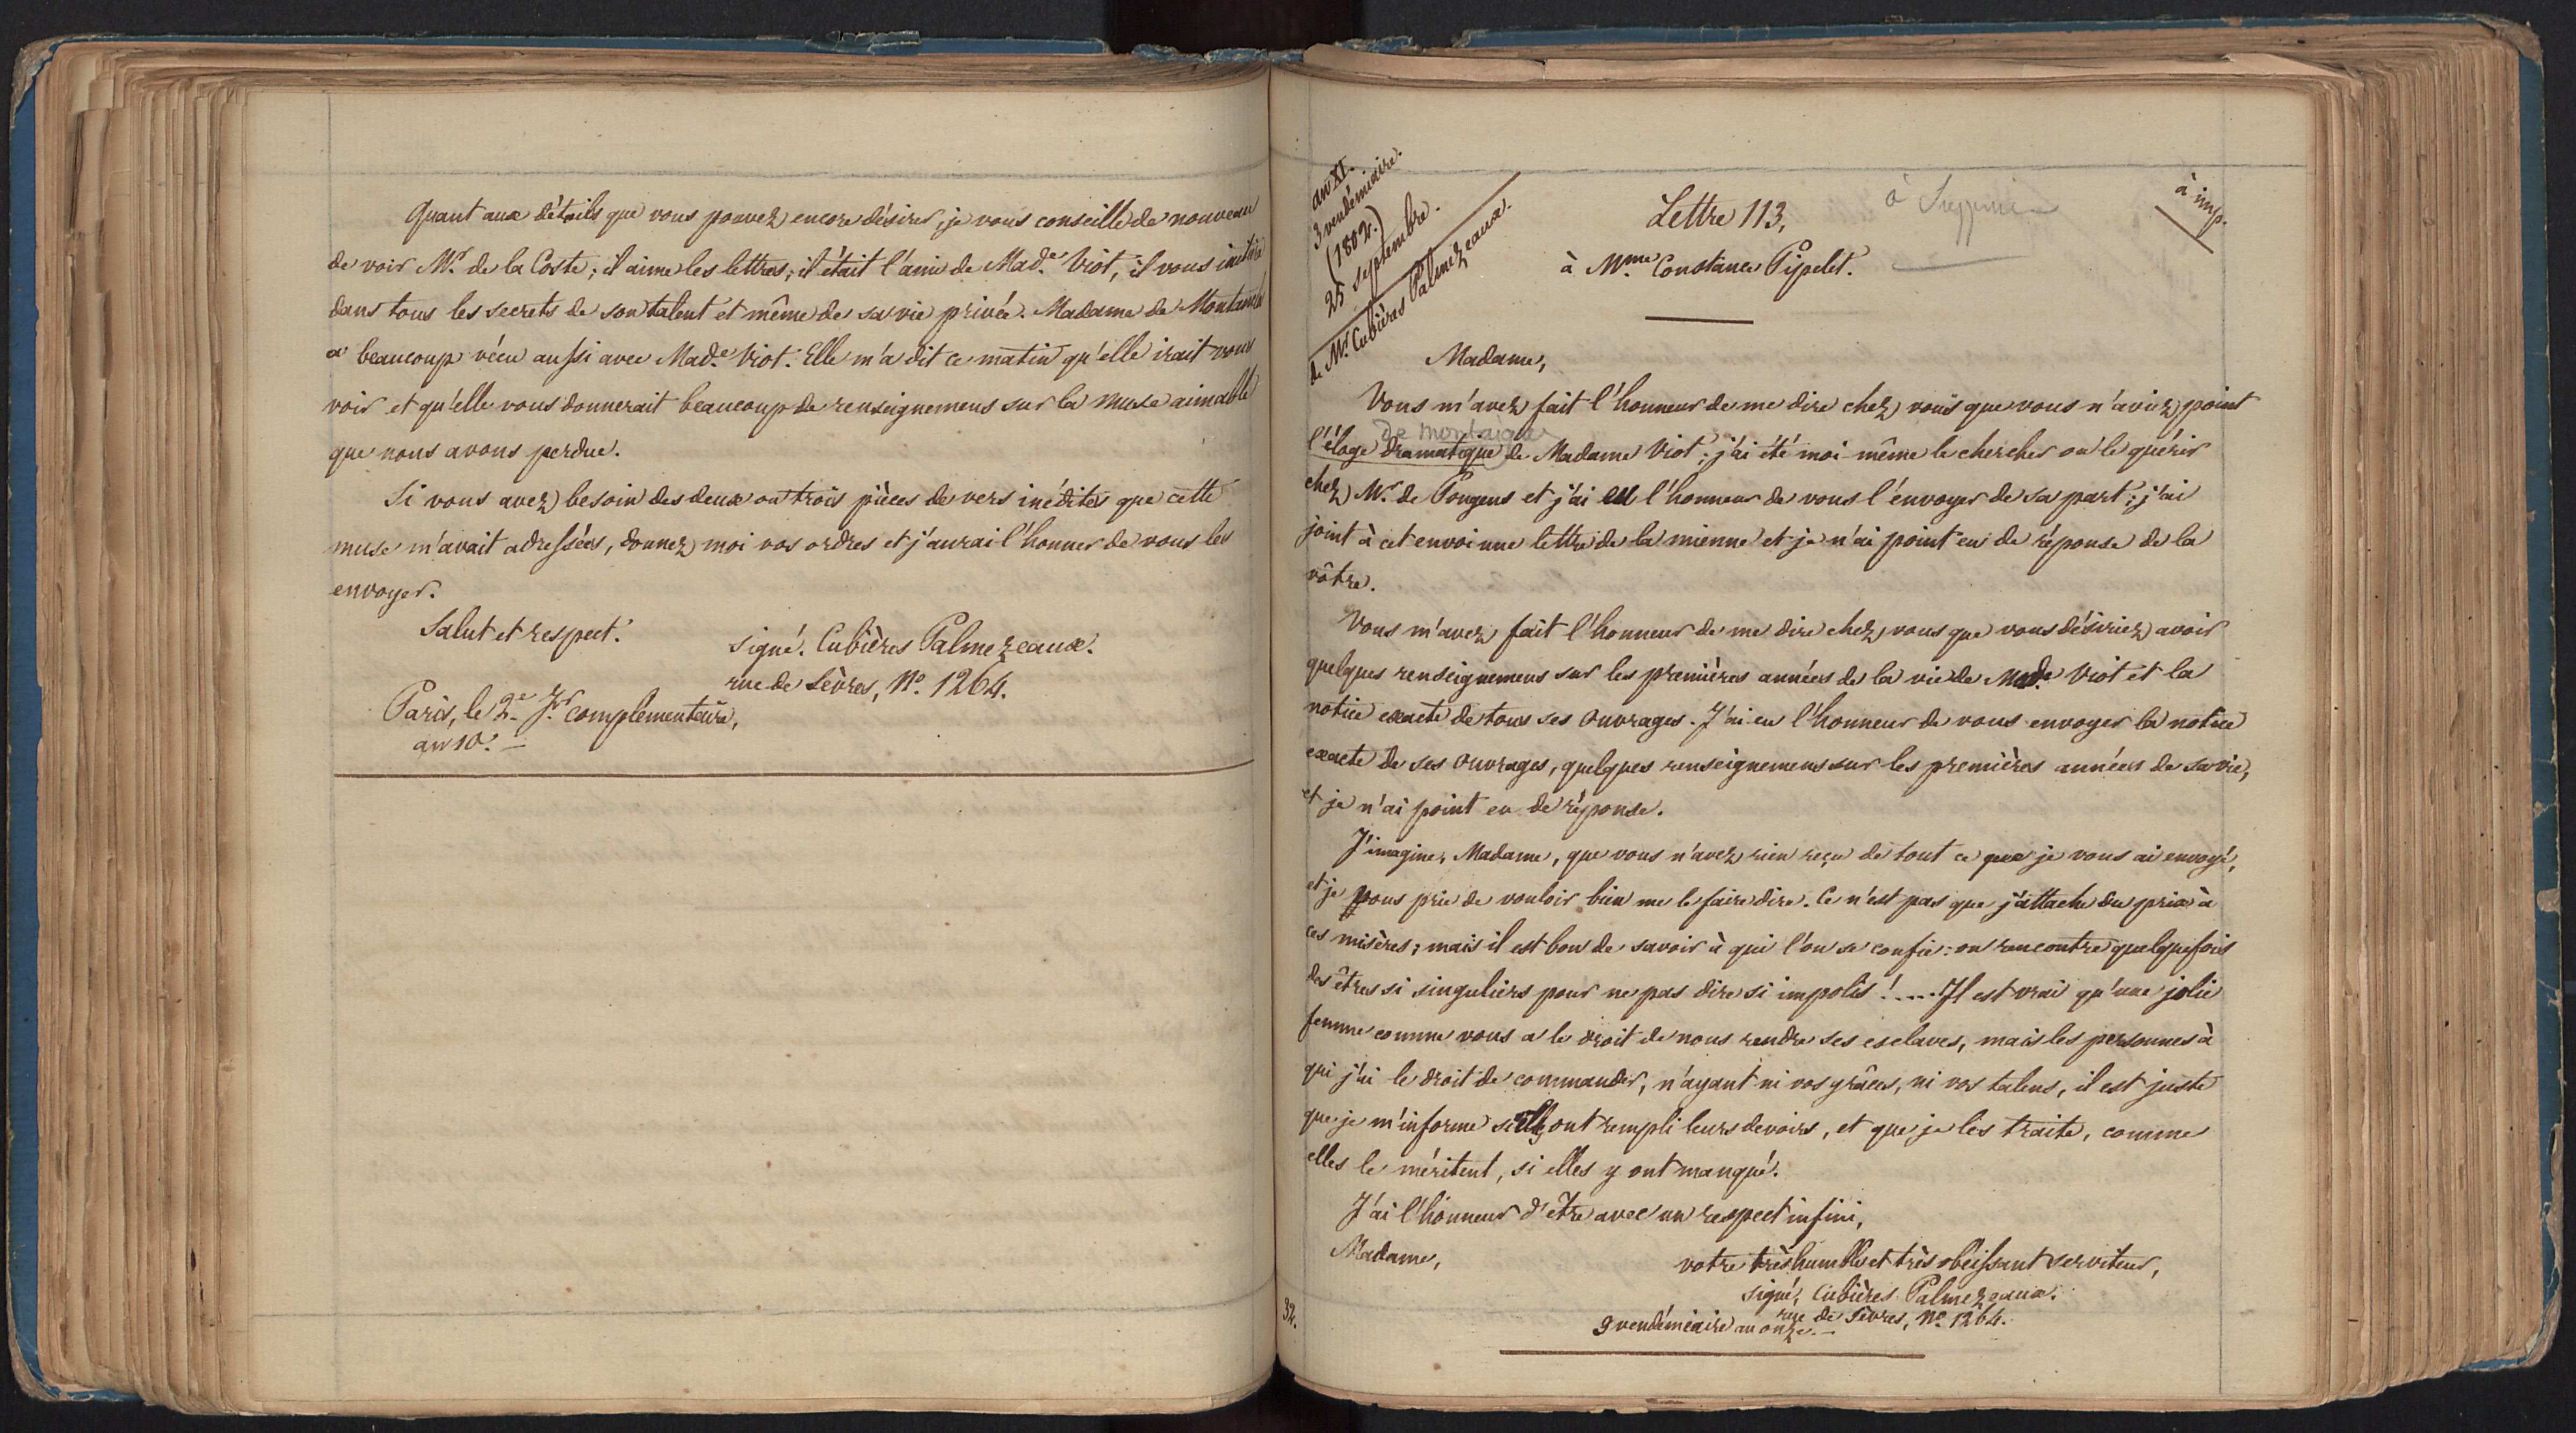 Quant aux détails que vous pouvez encore désirer, je vous conseille de nouveau
de voir Mr. de la Coste; il aime les lettres; il était l'ami de Made. Viot, il vous initiera
dans tous les secrets de son talent et même de sa vie privée. Madame de
a beaucoup vécu aussi avec Made. Viot. Elle m'a dit ce matin qu'elle irait vous
voir et qu'elle vous donnerait beaucoup de renseignemens sur la muse aimable
que nous avons perdue.
Si vous avez besoin des deux ou trois pièces de vers inédites que cette
muse m'avait adressées, donnez moi vos ordres et j'aurai l'honneur de vous les
envoyer.
Salut et respect.
signé. Cubières Palmezeaux.
rue de Sèvres, No. 1264.
Paris, le 2e. Jr. complémentaire,
an 10. —
an XI.
3 vendémiaire.
(1802.)
25 septembre.
de Mr. Cubières Palmezeaux.
Lettre 113,
à Supprimer
à imp.
à Mme. Constance Pipelet.
Madame,
Vous m'avez fait l'honneur de me dire chez vous que vous n'aviez point
de montaigne
l'éloge dramatique de Madame Viot; j'ai été moi même le chercher ou le quérir
chez Mr. de Pougens et j'ai eu l'honneur de vous l'envoyer de sa part; j'ai
joint à cet envoi une lettre de la mienne et je n'ai point eu de réponse de la
vôtre.
Vous m'avez fait l'honneur de me dire chez vous que vous désiriez avoir
quelques renseignemens sur les premières années de la vie de Made. Viot et la
notice exacte de tous ses ouvrages. J'ai eu l'honneur de vous envoyer la notice
exacte de ses ouvrages, quelques renseignemens sur les premières années de sa vie,
et je n'ai point eu de réponse.
J'imagine, Madame, que vous n'avez rien reçu de tout ce que je vous ai envoyé,
et je vous prie de vouloir bien me le faire dire. Ce n'est pas que j'attache du prix à
ces misères; mais il est bon de savoir à qui l'on se confie: on rencontre quelquefois
des êtres si singuliers pour ne pas dire si impolis!.... Il est vrai qu'une jolie
femme comme vous a le droit de nous rendre ses esclaves, mais les personnes à
qui j'ai le droit de commander, n'ayant ni vos grâces, ni vos talens, il est juste
que je m'informe si elles ont rempli leurs devoirs, et que je les traite, comme
elles le méritent, si elles y ont manqué.
J'ai l'honneur d'être avec un respect infini,
Madame,
votre très humble et très obéissant serviteur,
signé, Cubières Palmezeaux.
rue de Sèvres, No. 1264.
9 vendémiaire an onze. —
32.